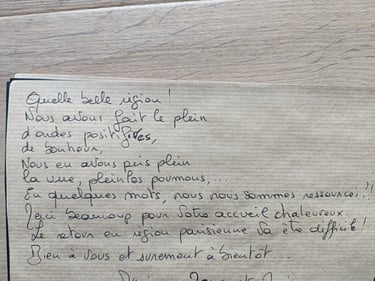 Quelle belle région !
Nous avons fait le plein
d'ondes positives,
de bonheur,
Nous en avons pris plein
la vue, plein les poumons,...
En quelques mots, nous nous sommes ressourcés !!
Merci beaucoup pour votre accueil chaleureux.
Le retour en région parisienne va être difficile !
Bien à vous et surement à bientôt...